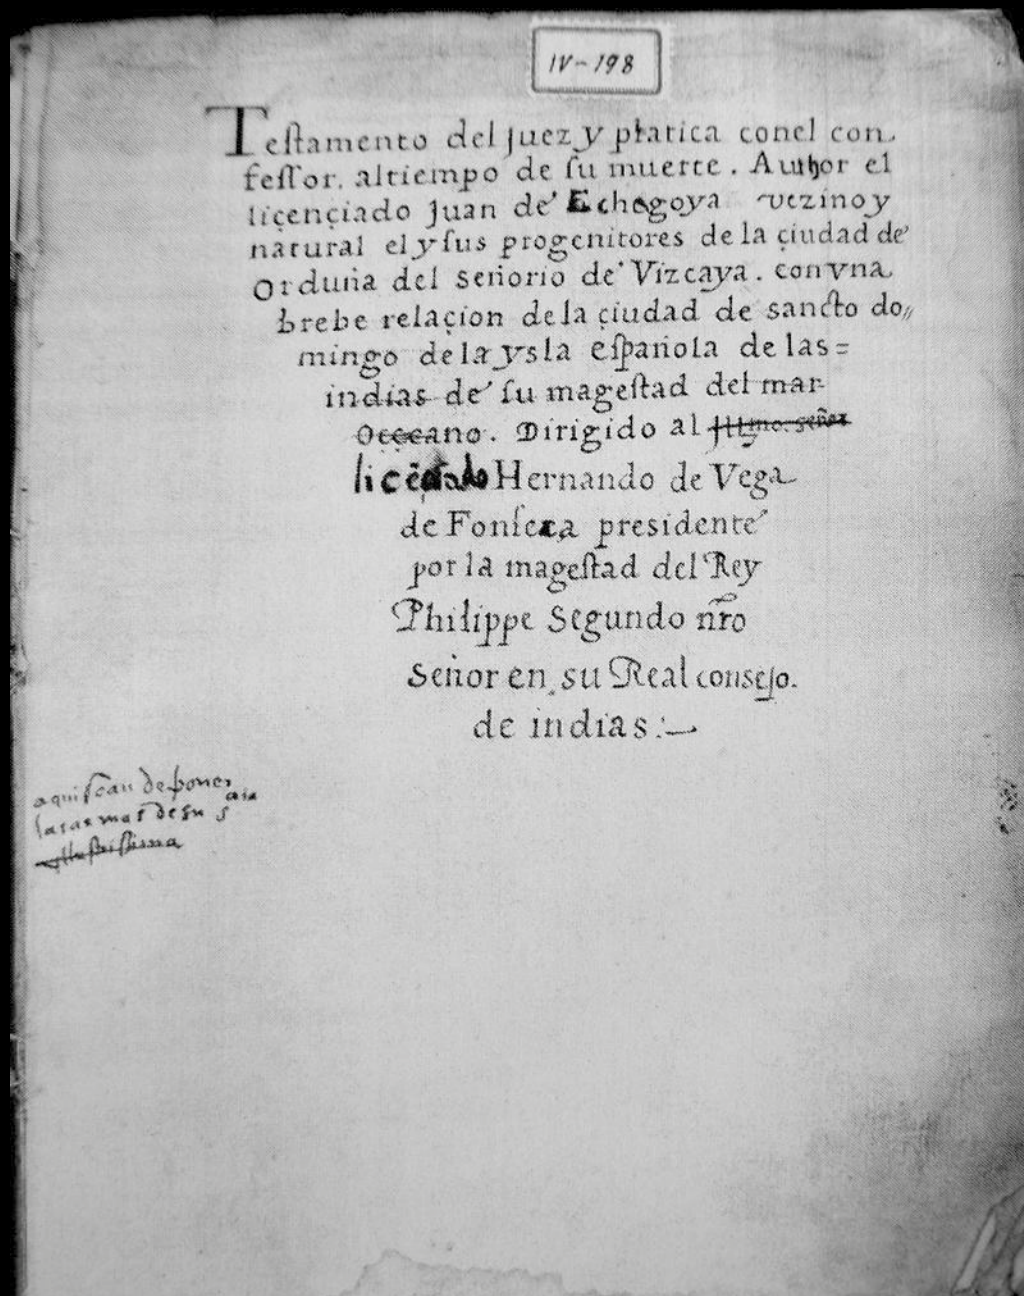 IV-198
Testamento del juez y platica con el con.
fessor. al tiempo de su muerte. Author el
liçençiado Juan de Echagoya vezino y
natural el y sus progenitores de la çiudad de
Orduña del señorio de Vizcaya. con vna
brebe relaçion de la çiudad de sancto do//
mingo de la ysla española de las=
indias de su magestad del mar
Oççeano. Dirigido al Illmo. señor
liçēçiado Hernando de Vega
de Fonseca presidente
por la magestad del Rey
Philippe Segundo nr̃o
señor en su Real consejo.
de indias:—
aqui se an de poner
las armas de su sª
Illustrissima